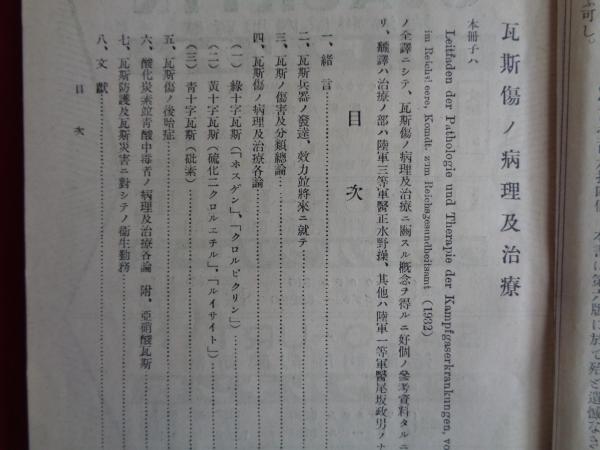 瓦斯傷ノ病理及治療
本冊子ハ
Leitfaden der Pathologie und Therapie der Kampfgaserkrankungen, vo
im Reichsheere, Komdt. zum Reichsgesundheitsamt (1932)
ノ全譯ニシテ、瓦斯傷ノ病理及治療ニ關スル概念ヲ得ルニ好個ノ參考資料タルニ
リ、飜譯ハ治療ノ部ハ陸軍三等軍醫正水野操、其他ハ陸軍一等軍醫尾坂政男ノ
目次
一、緒言
二、瓦斯兵器ノ發達、效力並將來ニ就テ
三、瓦斯ノ傷害及分類總論
四、瓦斯傷ノ病理及治療各論
(一)綠十字瓦斯(「ホスゲン」、「クロルピクリン」)
(二)黃十字瓦斯(硫化二クロルエチル」、「ルイサイト」)
(三)靑十字瓦斯(砒素)
五、瓦斯傷ノ後貽症
六、酸化炭素並靑酸中毒者ノ病理及治療各論 附、亞硝酸瓦斯
七、瓦斯防護及瓦斯災害ニ對シテノ衞生勤務
八、文獻
目次